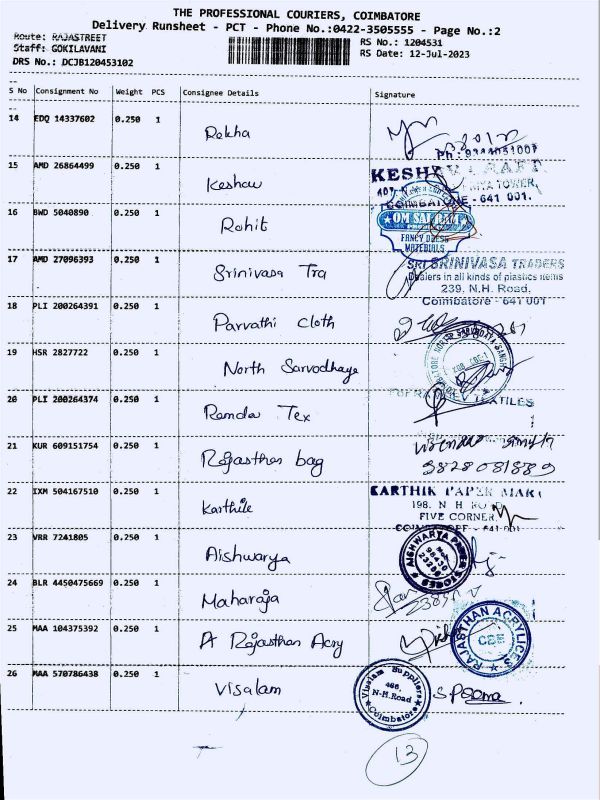 THE PROFESSIONAL COURIERS, COIMBATORE
Delivery Runsheet - PCT - Phone No.:0422-3505555 - Page No.:2
Route: RAJASTREET
Staff: GOKILAVANI
RS No.: 1204531
RS Date: 12-Jul-2023
DRS No.: DCJB120453102
S No Consignment No Weight PCS Consignee Details Signature
14 EDQ 14337602 0.250 1 Rekha
15 AMD 26864499 0.250 1 Keshav
KESHAV
TOWER,
COIMBATORE - 641 001.
16 BWD 5040890 0.250 1 Rohit
OM SAI
FANCY DRESS
MATERIALS
17 AMD 27096393 0.250 1 Srinivasa Tra
SRI SRINIVASA TRADERS
Dealers in all kinds of plastics items
239, N.H. Road,
Coimbatore - 641 001
18 PLI 200264391 0.250 1 Parvathi cloth
19 HSR 2827722 0.250 1 North Sarvodhaya
20 PLI 200264374 0.250 1 Ramdev Tex
TEXTILES
21 KUR 609151754 0.250 1 Rajasthan bag
9828081889
22 IXM 504167510 0.250 1 Karthik
KARTHIK PAPER MART
198, N H ROAD
FIVE CORNER,
COIMBATORE - 641 001
23 VRR 7241805 0.250 1 Aishwarya
AISHWARYA PAPER STORES
24 BLR 4450475669 0.250 1 Maharaja
25 MAA 104375392 0.250 1 A Rajasthan Acry
RAJASTHAN ACRYLICES
CBE
26 MAA 570786438 0.250 1 Visalam
Visalam Suppliers
486,
N-H.Road
Coimbatore
S Poorna
13